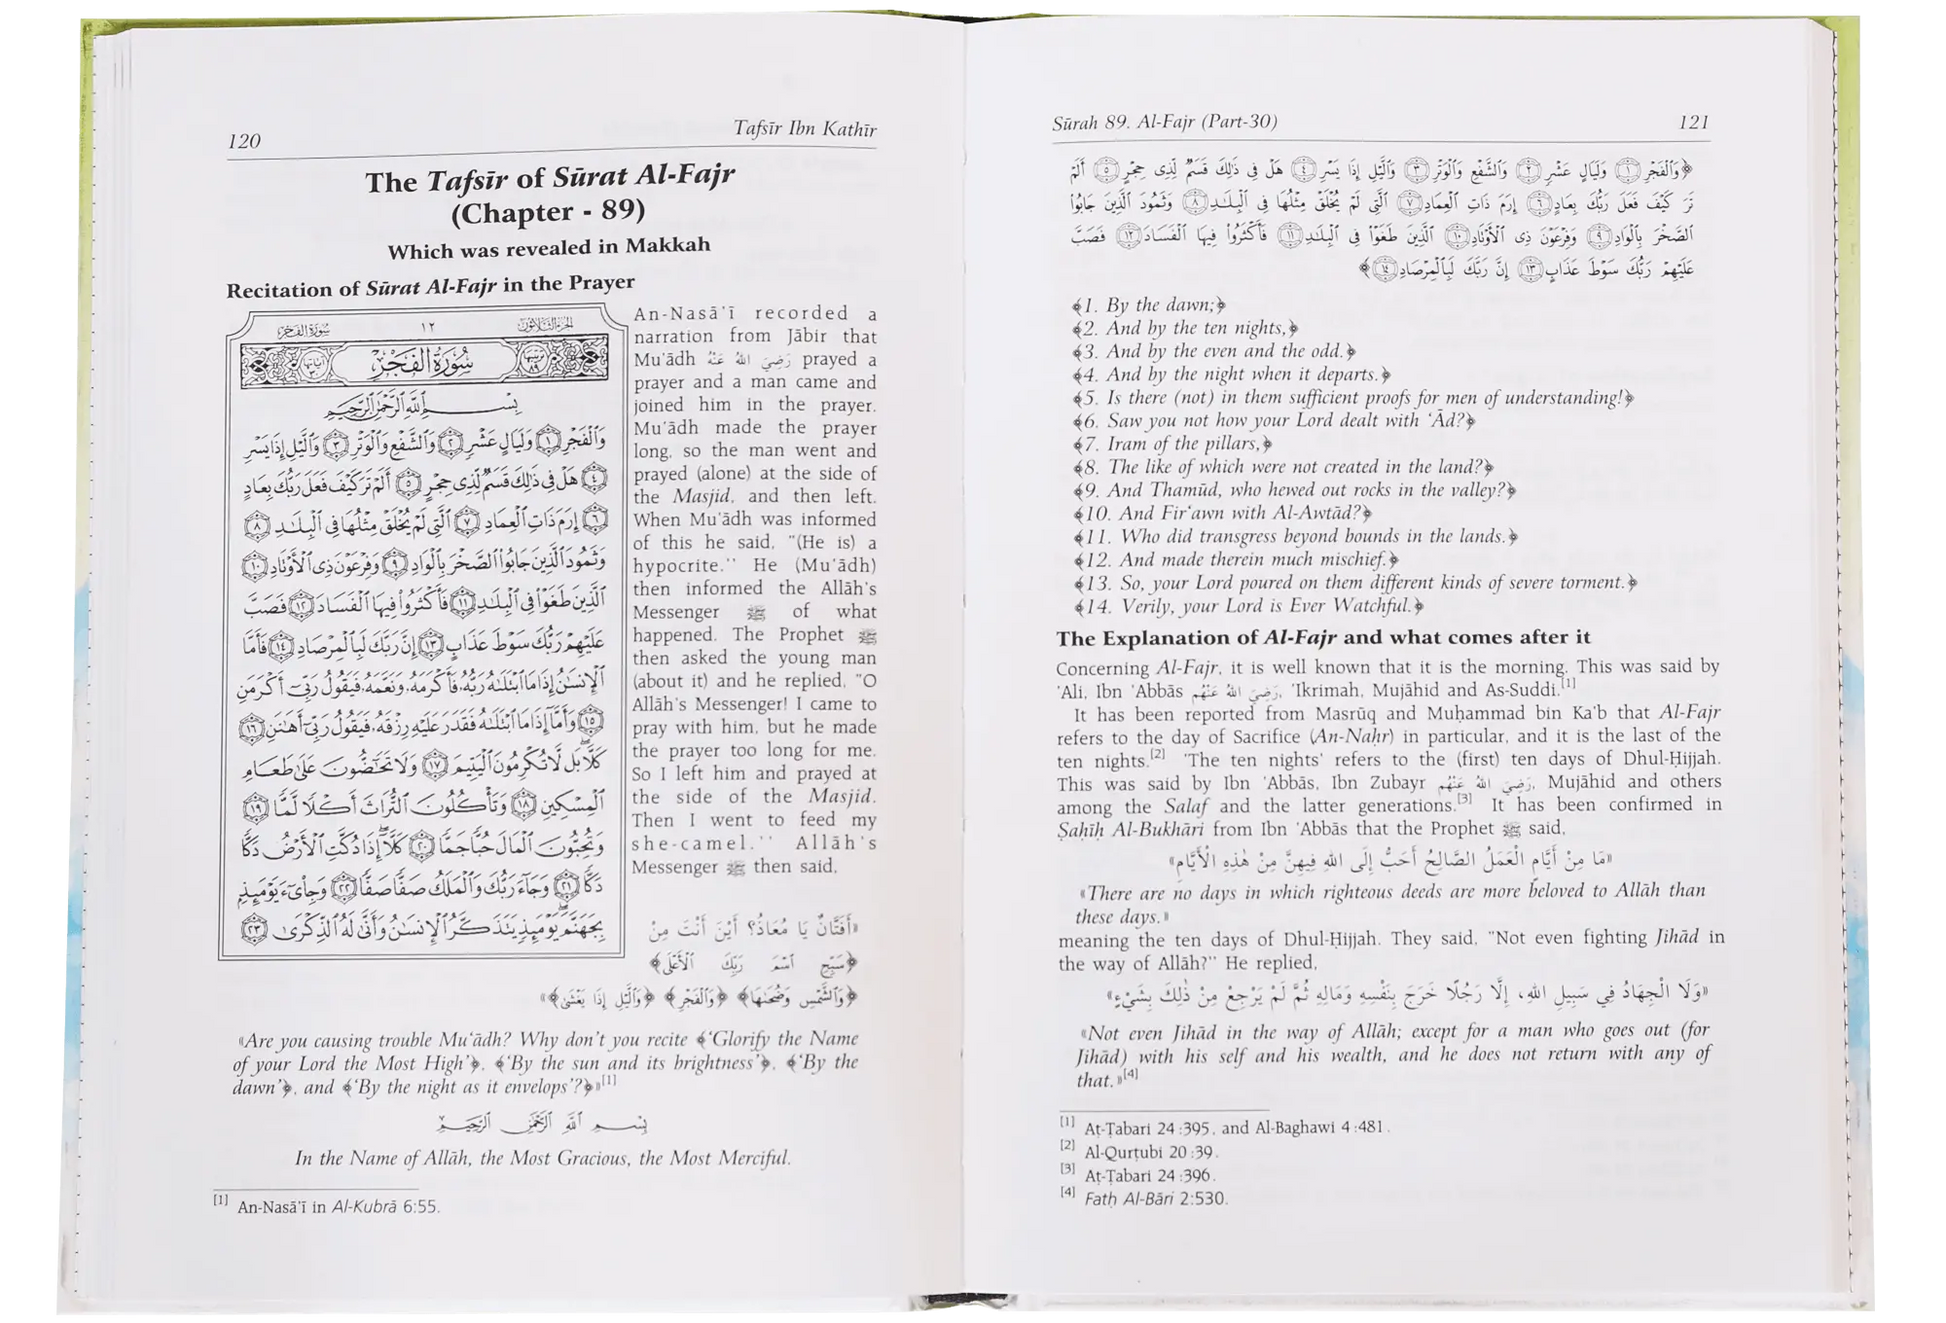 120
Tafsīr Ibn Kathīr
The Tafsīr of Sūrat Al-Fajr
(Chapter - 89)
Which was revealed in Makkah
Recitation of Sūrat Al-Fajr in the Prayer
سورة الفجر
١٢
الجزء الثلاثون
سُورَةُ الفَجْرِ
بِسْمِ اللَّهِ الرَّحْمَٰنِ الرَّحِيمِ
وَالْفَجْرِ ١ وَلَيَالٍ عَشْرٍ ٢ وَالشَّفْعِ وَالْوَتْرِ ٣ وَاللَّيْلِ إِذَا يَسْرِ
٤ هَلْ فِي ذَٰلِكَ قَسَمٌ لِّذِي حِجْرٍ ٥ أَلَمْ تَرَ كَيْفَ فَعَلَ رَبُّكَ بِعَادٍ
٦ إِرَمَ ذَاتِ الْعِمَادِ ٧ الَّتِي لَمْ يُخْلَقْ مِثْلُهَا فِي الْبِلَٰدِ ٨
وَثَمُودَ الَّذِينَ جَابُوا الصَّخْرَ بِالْوَادِ ٩ وَفِرْعَوْنَ ذِي الْأَوْتَادِ ١٠
الَّذِينَ طَغَوْا فِي الْبِلَٰدِ ١١ فَأَكْثَرُوا فِيهَا الْفَسَادَ ١٢ فَصَبَّ
عَلَيْهِمْ رَبُّكَ سَوْطَ عَذَابٍ ١٣ إِنَّ رَبَّكَ لَبِالْمِرْصَادِ ١٤ فَأَمَّا
الْإِنسَٰنُ إِذَا مَا ابْتَلَىٰهُ رَبُّهُ فَأَكْرَمَهُ وَنَعَّمَهُ فَيَقُولُ رَبِّي أَكْرَمَنِ
١٥ وَأَمَّا إِذَا مَا ابْتَلَىٰهُ فَقَدَرَ عَلَيْهِ رِزْقَهُ فَيَقُولُ رَبِّي أَهَٰنَنِ ١٦
كَلَّا بَل لَّا تُكْرِمُونَ الْيَتِيمَ ١٧ وَلَا تَحَٰضُّونَ عَلَىٰ طَعَامِ
الْمِسْكِينِ ١٨ وَتَأْكُلُونَ التُّرَاثَ أَكْلًا لَّمًّا ١٩
وَتُحِبُّونَ الْمَالَ حُبًّا جَمًّا ٢٠ كَلَّا إِذَا دُكَّتِ الْأَرْضُ دَكًّا
دَكًّا ٢١ وَجَاءَ رَبُّكَ وَالْمَلَكُ صَفًّا صَفًّا ٢٢ وَجِاْيءَ يَوْمَئِذٍ
بِجَهَنَّمَ يَوْمَئِذٍ يَتَذَكَّرُ الْإِنسَٰنُ وَأَنَّىٰ لَهُ الذِّكْرَىٰ ٢٣
An-Nasā'ī recorded a
narration from Jābir that
Mu'ādh رَضِيَ اللهُ عَنْهُ prayed a
prayer and a man came and
joined him in the prayer.
Mu'ādh made the prayer
long, so the man went and
prayed (alone) at the side of
the Masjid, and then left.
When Mu'ādh was informed
of this he said, "(He is) a
hypocrite." He (Mu'ādh)
then informed the Allāh's
Messenger ﷺ of what
happened. The Prophet ﷺ
then asked the young man
(about it) and he replied, "O
Allāh's Messenger! I came to
pray with him, but he made
the prayer too long for me.
So I left him and prayed at
the side of the Masjid.
Then I went to feed my
she-camel." Allāh's
Messenger ﷺ then said,
«أَفَتَّانٌ يَا مُعَاذُ؟ أَيْنَ أَنْتَ مِنْ
﴿سَبِّحِ اسْمَ رَبِّكَ الْأَعْلَى﴾
﴿وَالشَّمْسِ وَضُحَىٰهَا﴾ ﴿وَالْفَجْرِ﴾ ﴿وَاللَّيْلِ إِذَا يَغْشَىٰ﴾»
«Are you causing trouble Mu'ādh? Why don't you recite ﴾'Glorify the Name
of your Lord the Most High'﴿, ﴾'By the sun and its brightness'﴿, ﴾'By the
dawn'﴿, and ﴾'By the night as it envelops'?﴿»[1]
بِسْمِ اللَّهِ الرَّحْمَٰنِ الرَّحِيمِ
In the Name of Allāh, the Most Gracious, the Most Merciful.
[1] An-Nasā'ī in Al-Kubrā 6:55.
Sūrah 89. Al-Fajr (Part-30)
121
﴿وَالْفَجْرِ ١ وَلَيَالٍ عَشْرٍ ٢ وَالشَّفْعِ وَالْوَتْرِ ٣ وَاللَّيْلِ إِذَا يَسْرِ ٤ هَلْ فِي ذَٰلِكَ قَسَمٌ لِّذِي حِجْرٍ ٥ أَلَمْ
تَرَ كَيْفَ فَعَلَ رَبُّكَ بِعَادٍ ٦ إِرَمَ ذَاتِ الْعِمَادِ ٧ الَّتِي لَمْ يُخْلَقْ مِثْلُهَا فِي الْبِلَٰدِ ٨ وَثَمُودَ الَّذِينَ جَابُوا
الصَّخْرَ بِالْوَادِ ٩ وَفِرْعَوْنَ ذِي الْأَوْتَادِ ١٠ الَّذِينَ طَغَوْا فِي الْبِلَٰدِ ١١ فَأَكْثَرُوا فِيهَا الْفَسَادَ ١٢ فَصَبَّ
عَلَيْهِمْ رَبُّكَ سَوْطَ عَذَابٍ ١٣ إِنَّ رَبَّكَ لَبِالْمِرْصَادِ ١٤﴾
﴾1. By the dawn;﴿
﴾2. And by the ten nights,﴿
﴾3. And by the even and the odd.﴿
﴾4. And by the night when it departs.﴿
﴾5. Is there (not) in them sufficient proofs for men of understanding!﴿
﴾6. Saw you not how your Lord dealt with 'Ād?﴿
﴾7. Iram of the pillars,﴿
﴾8. The like of which were not created in the land?﴿
﴾9. And Thamūd, who hewed out rocks in the valley?﴿
﴾10. And Fir'awn with Al-Awtād?﴿
﴾11. Who did transgress beyond bounds in the lands.﴿
﴾12. And made therein much mischief.﴿
﴾13. So, your Lord poured on them different kinds of severe torment.﴿
﴾14. Verily, your Lord is Ever Watchful.﴿
The Explanation of Al-Fajr and what comes after it
Concerning Al-Fajr, it is well known that it is the morning. This was said by
'Ali, Ibn 'Abbās رَضِيَ اللهُ عَنْهُم, 'Ikrimah, Mujāhid and As-Suddi.[1]
It has been reported from Masrūq and Muḥammad bin Ka'b that Al-Fajr
refers to the day of Sacrifice (An-Naḥr) in particular, and it is the last of the
ten nights.[2] 'The ten nights' refers to the (first) ten days of Dhul-Ḥijjah.
This was said by Ibn 'Abbās, Ibn Zubayr رَضِيَ اللهُ عَنْهُم, Mujāhid and others
among the Salaf and the latter generations.[3] It has been confirmed in
Ṣaḥīḥ Al-Bukhāri from Ibn 'Abbās that the Prophet ﷺ said,
«مَا مِنْ أَيَّامٍ الْعَمَلُ الصَّالِحُ أَحَبُّ إِلَى اللهِ فِيهِنَّ مِنْ هَٰذِهِ الْأَيَّامِ»
«There are no days in which righteous deeds are more beloved to Allāh than
these days.»
meaning the ten days of Dhul-Ḥijjah. They said, "Not even fighting Jihād in
the way of Allāh?" He replied,
«وَلَا الْجِهَادُ فِي سَبِيلِ اللهِ، إِلَّا رَجُلًا خَرَجَ بِنَفْسِهِ وَمَالِهِ ثُمَّ لَمْ يَرْجِعْ مِنْ ذَٰلِكَ بِشَيْءٍ»
«Not even Jihād in the way of Allāh; except for a man who goes out (for
Jihād) with his self and his wealth, and he does not return with any of
that.»[4]
[1] Aṭ-Ṭabari 24:395, and Al-Baghawi 4:481.
[2] Al-Qurṭubi 20:39.
[3] Aṭ-Ṭabari 24:396.
[4] Fatḥ Al-Bāri 2:530.